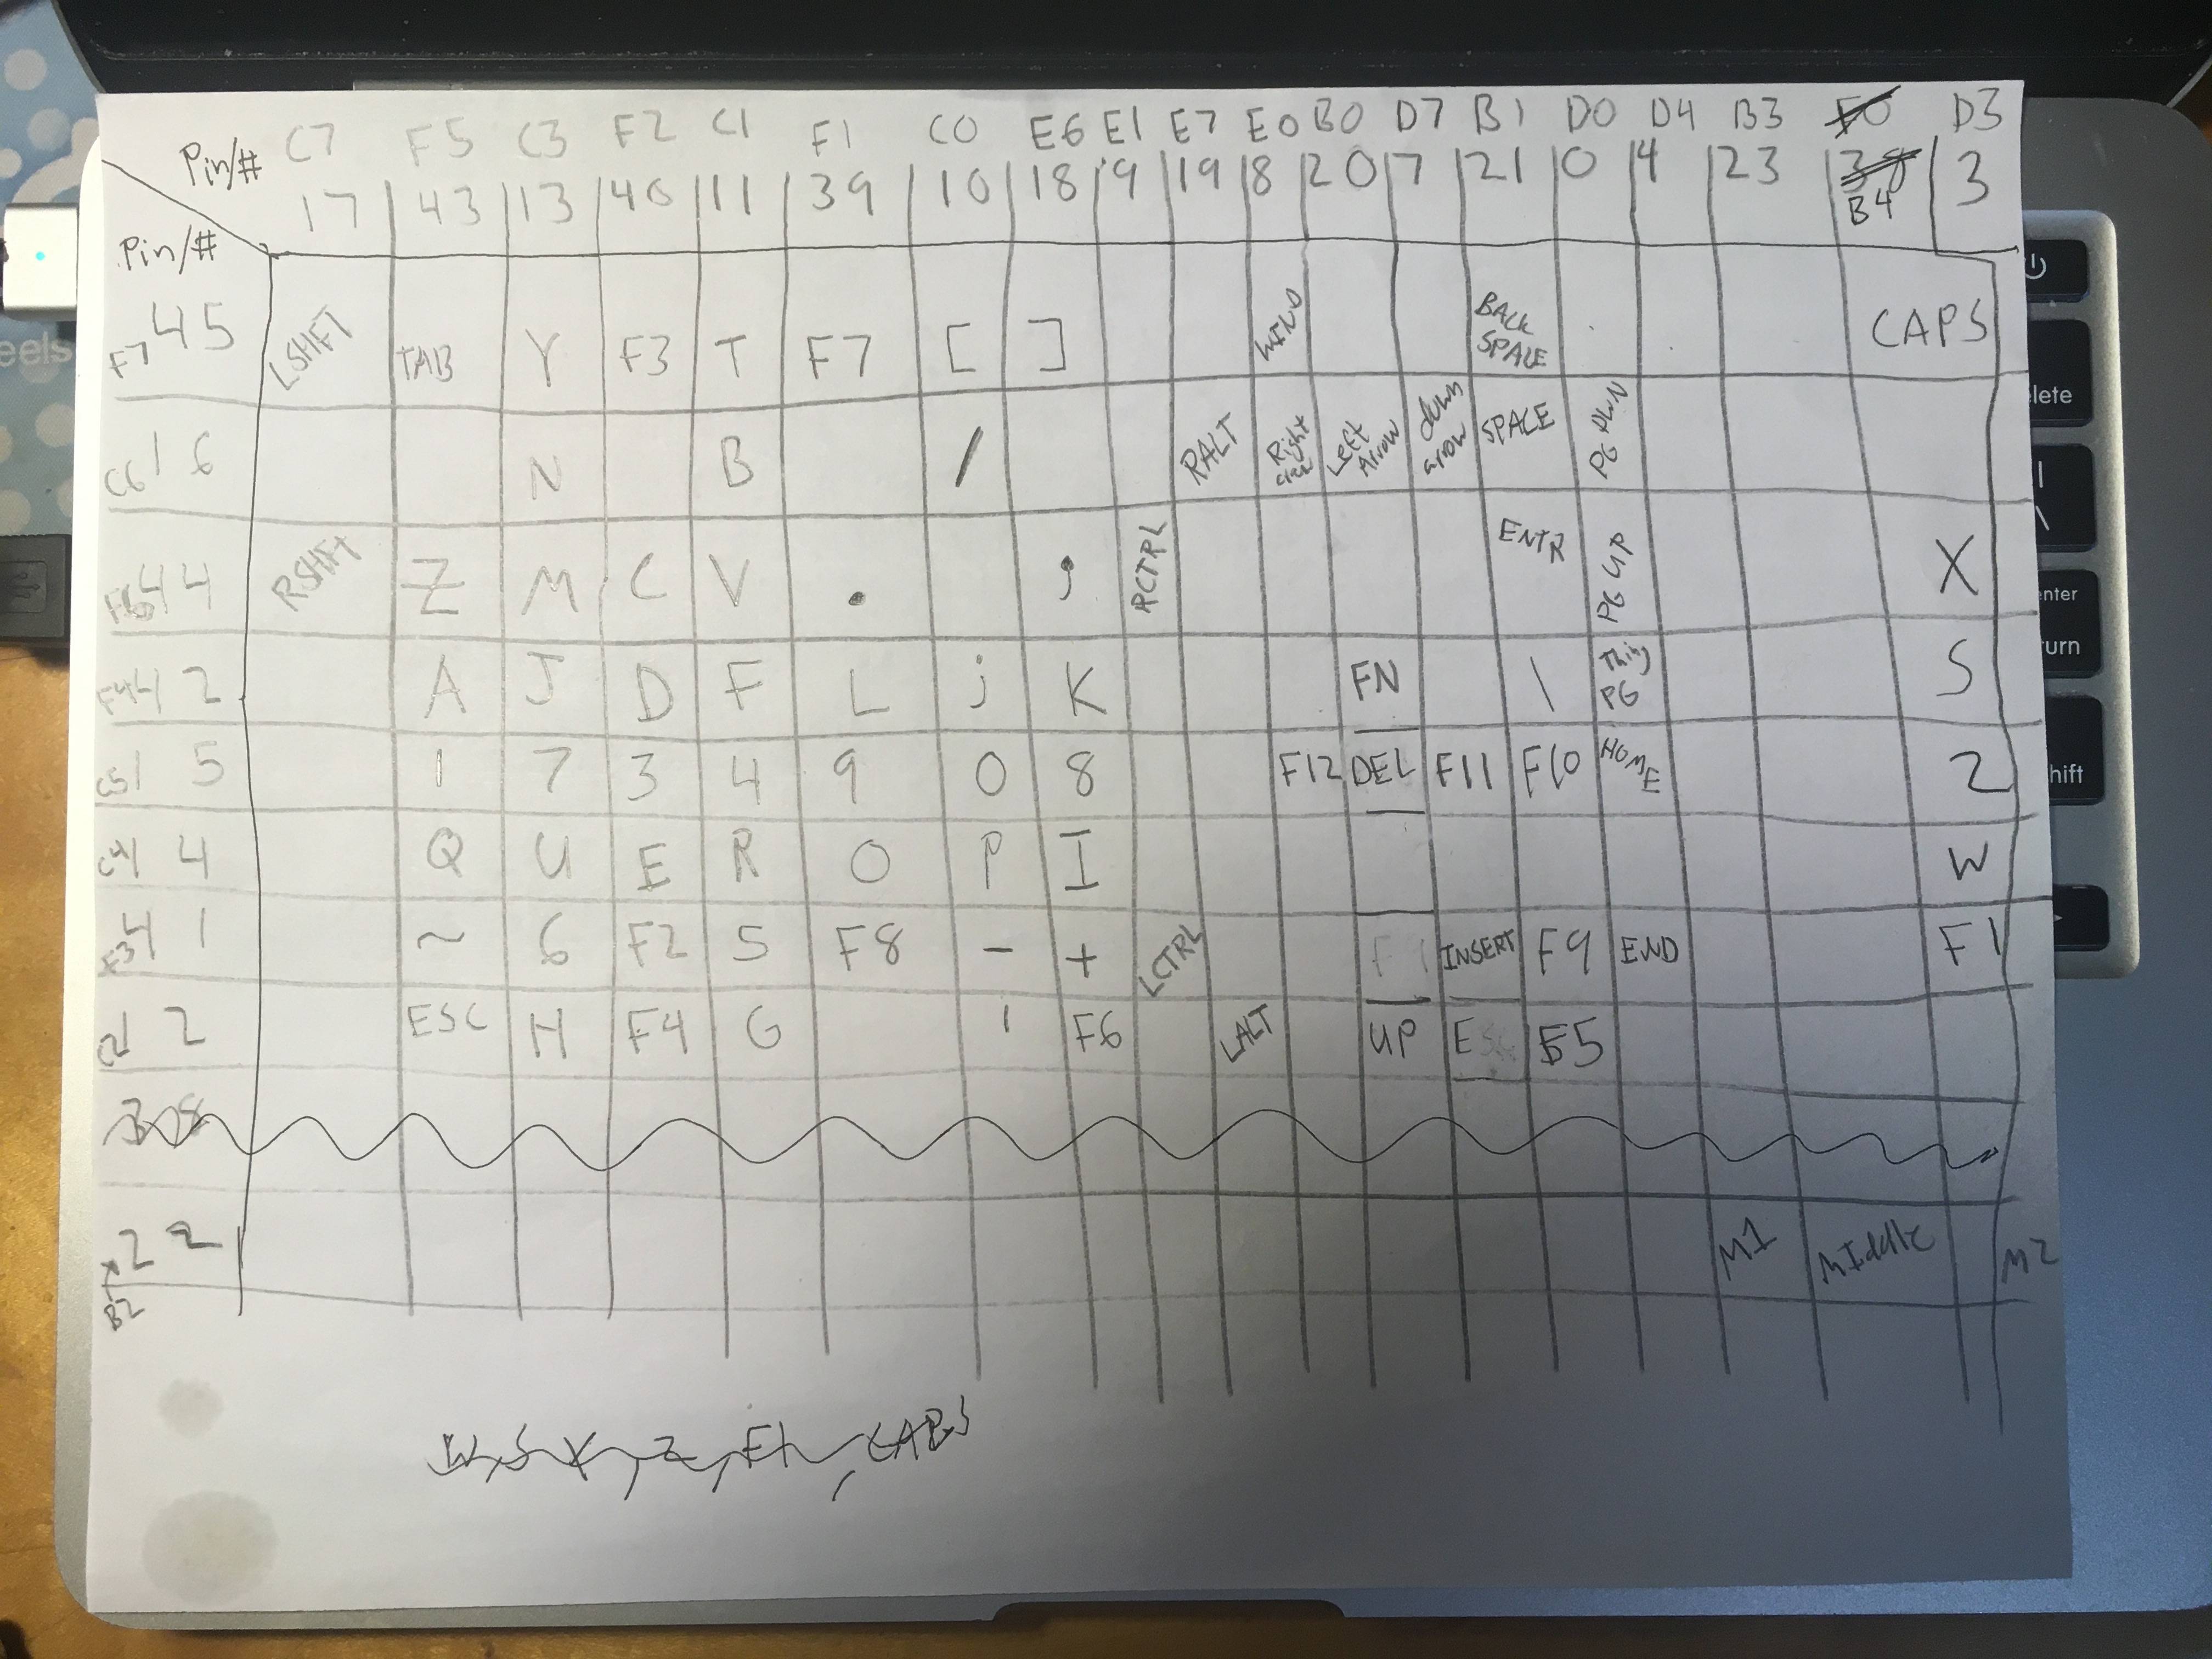 Pin/# C7 F5 C3 F2 C1 F1 C0 E6 E1 E7 E0 B0 D7 B1 D0 D4 B3 D3
17 43 13 40 11 39 10 18 9 19 8 20 7 21 0 4 23 3
B4
Pin/#
F7 45 LSHFT TAB Y F3 T F7 [ ] WIND BACK SPACE CAPS
C6 16 N B / RALT Right Left Arrow down arrow SPACE PG DWN
F6 44 RSHFT Z M C V . , RCTRL ENTR PG UP X
F4 42 A J D F L ; K FN \ Thing PG S
C5 15 1 7 3 4 9 0 8 F12 DEL F11 F10 HOME 2
C4 14 Q U E R O P I W
F3 41 ~ 6 F2 5 F8 - + LCTRL F1 INSERT F9 END F1
C2 12 ESC H F4 G ' F6 LALT UP ESC F5
22 M1 MIddle M2
B2
W, S, X, 2, F1, CAPS
delete
enter
return
shift
eels